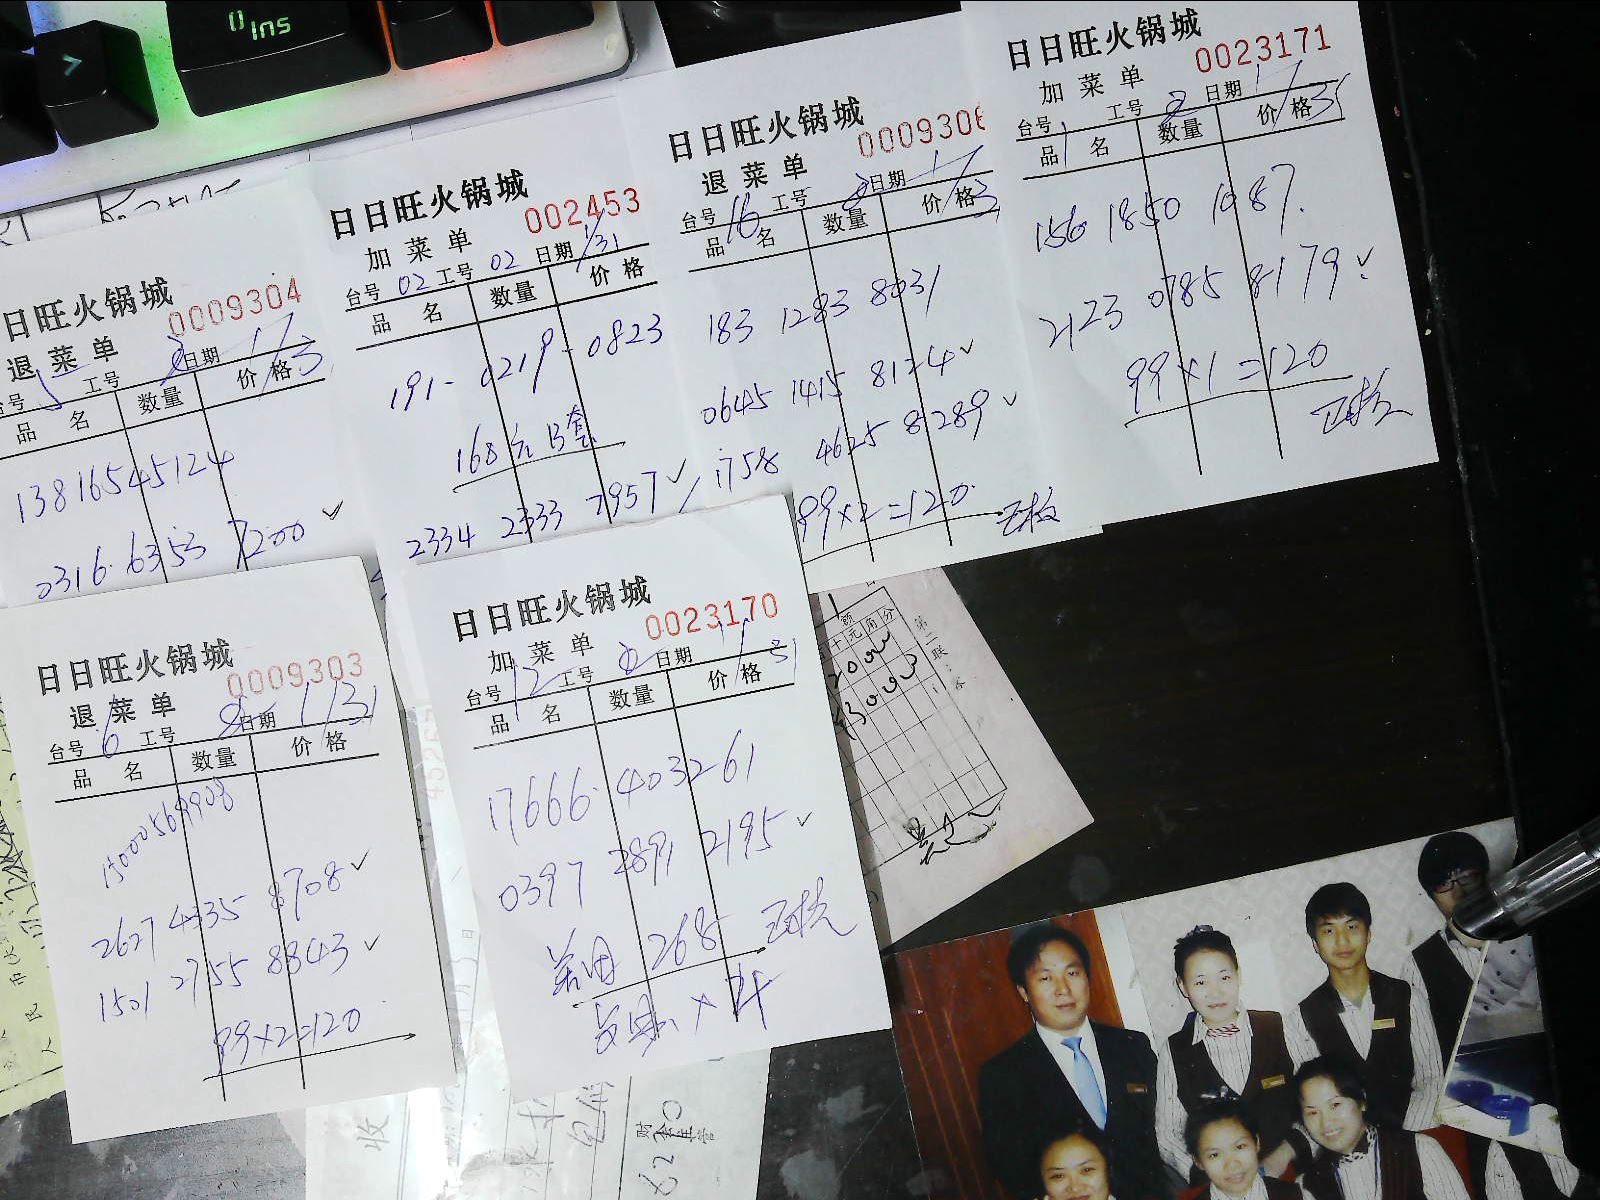 Ins
日日旺火锅城
0009304
退菜单
台号 5 工号 日期 1/3
品 名 数量 价格
13816545124
0316 6353 7200 ✓
日日旺火锅城
002453
加菜单
台号 02 工号 02 日期 1/31
品 名 数量 价格
191-0219-0823
168元B套
2334 2333 7957 ✓
日日旺火锅城
000930
退菜单
台号 16 工号 日期 1/3
品 名 数量 价格
183 1283 8031
0645 1415 8124 ✓
1758 4625 8289 ✓
99×2=120
日日旺火锅城
0023171
加菜单
台号 1 工号 日期 1/3
品 名 数量 价格
156 1850 1087.
2123 0785 8179 ✓
99×1=120
日日旺火锅城
0009303
退菜单
台号 6 工号 日期 1/31
品 名 数量 价格
15000569908
2627 4335 8708 ✓
1501 2755 8843 ✓
99×2=120
日日旺火锅城
0023170
加菜单
台号 12 工号 日期 1/31
品 名 数量 价格
17666 403261
0397 2891 2195 ✓
美团 268
额
十元角分
第二联
收
6230